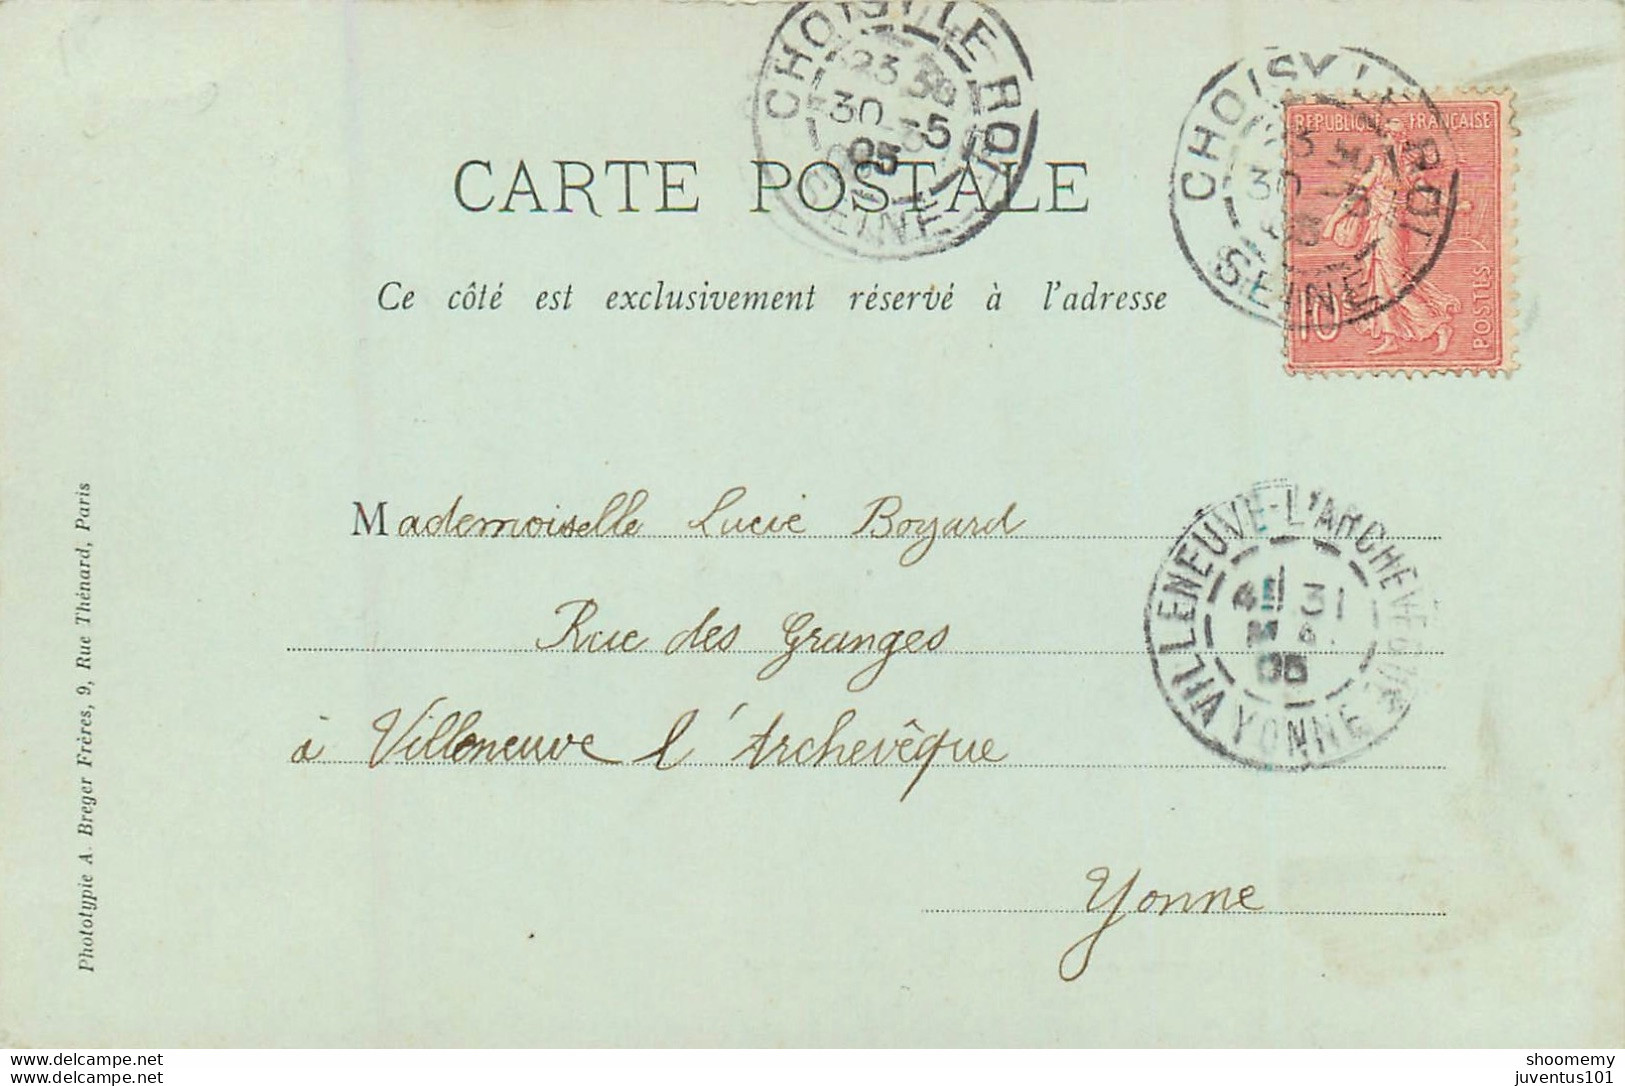 CHOISY LE ROI
23 30
30 -5
05
SEINE
CHOISY LE ROI
23 30
30 5
05
SEINE
REPUBLIQUE FRANÇAISE
10
POSTES
CARTE POSTALE
Ce côté est exclusivement réservé à l'adresse
Mademoiselle Lucie Boyard
Rue des Granges
à Villeneuve l'Archevêque
Yonne
VILLENEUVE-L'ARCHEVEQUE
31
05
YONNE
Phototypie A. Breger Frères, 9, Rue Thénard, Paris
www.delcampe.net
shoomemy
juventus101